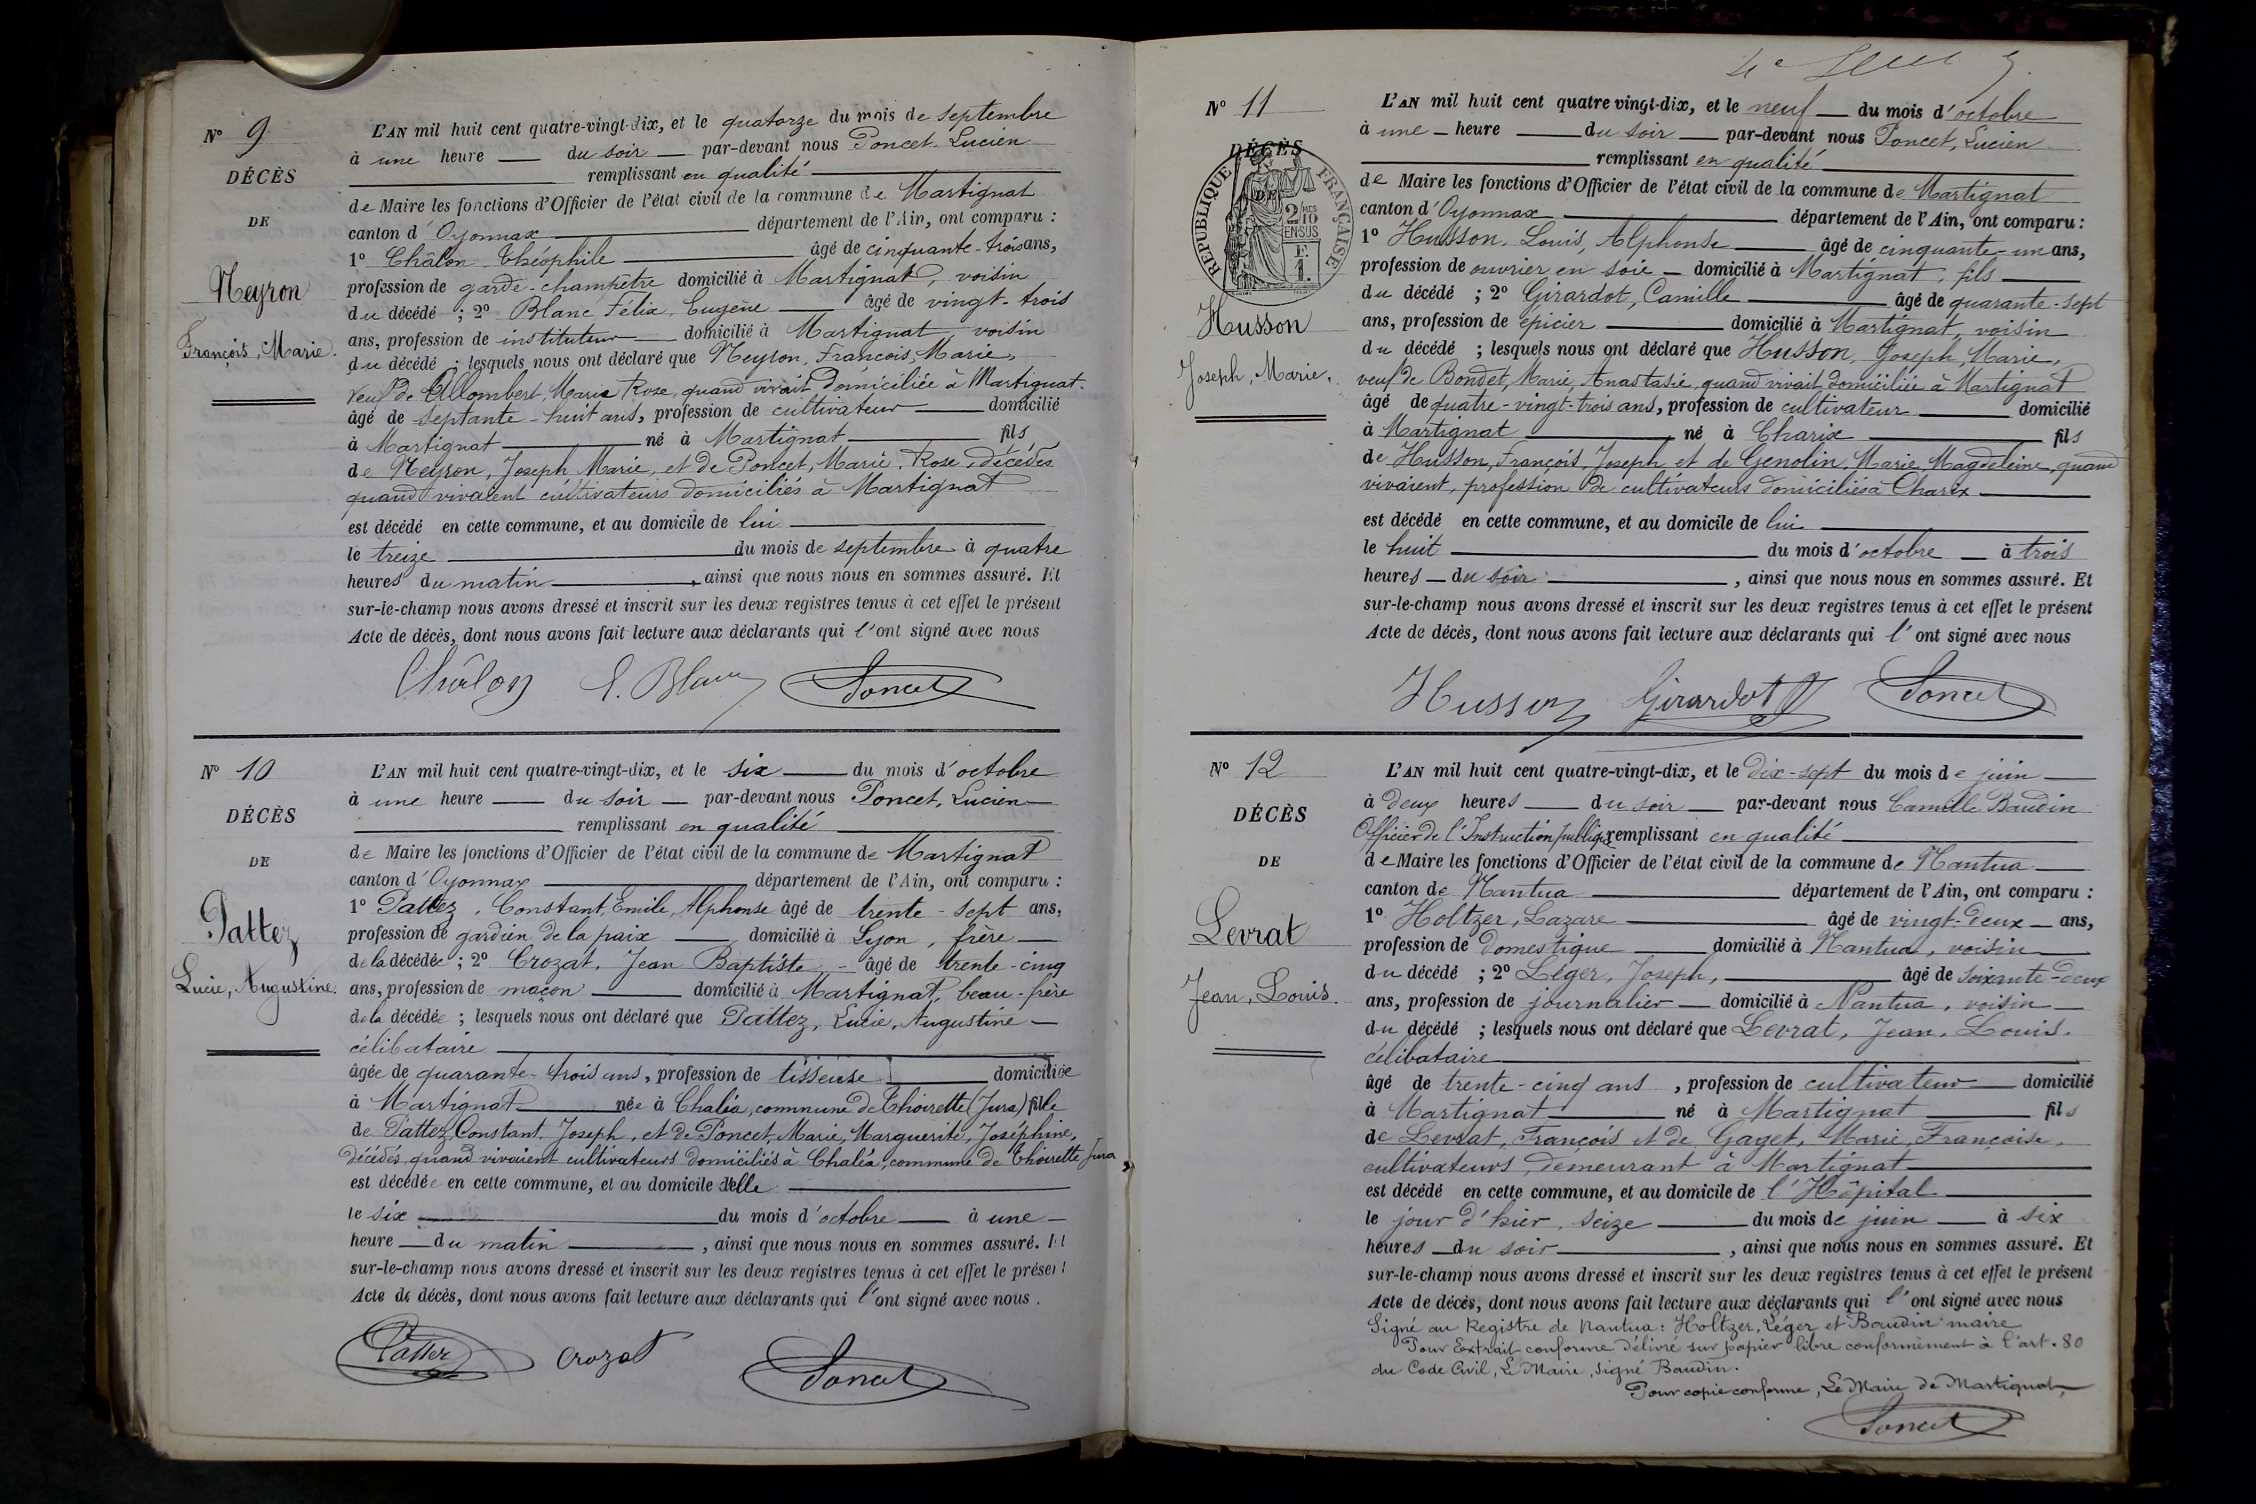 N° 9
DÉCÈS
DE
Neyron
François, Marie.
L'AN mil huit cent quatre-vingt-dix, et le quatorze du mois de septembre
à une heure du soir par-devant nous Poncet, Lucien
remplissant en qualité
de Maire les fonctions d'Officier de l'état civil de la commune de Martignat
canton d'Oyonnax département de l'Ain, ont comparu :
1° Châlon Théophile âgé de cinquante-trois ans,
profession de garde-champêtre domicilié à Martignat, voisin
du décédé ; 2° Blanc Félix, Eugène âgé de vingt-trois
ans, profession de instituteur domicilié à Martignat, voisin
du décédé ; lesquels nous ont déclaré que Neyron, François, Marie,
veuf de Allombert, Marie Rose, quand vivait domiciliée à Martignat.
âgé de septante-huit ans, profession de cultivateur domicilié
à Martignat né à Martignat fils
de Neyron, Joseph Marie, et de Poncet, Marie, Rose, décédés
quand vivaient cultivateurs domiciliés à Martignat
est décédé en cette commune, et au domicile de lui
le treize du mois de septembre à quatre
heures du matin, ainsi que nous nous en sommes assuré. Et
sur-le-champ nous avons dressé et inscrit sur les deux registres tenus à cet effet le présent
Acte de décès, dont nous avons fait lecture aux déclarants qui l'ont signé avec nous
Châlon E. Blanc Poncet
N° 10
DÉCÈS
DE
Pattez
Lucie, Augustine.
L'AN mil huit cent quatre-vingt-dix, et le six du mois d'octobre
à une heure du soir par-devant nous Poncet, Lucien
remplissant en qualité
de Maire les fonctions d'Officier de l'état civil de la commune de Martignat
canton d'Oyonnax département de l'Ain, ont comparu :
1° Pattez, Constant, Emile, Alphonse âgé de trente-sept ans,
profession de gardien de la paix domicilié à Lyon, frère
de la décédée ; 2° Crozat, Jean Baptiste - âgé de trente-cinq
ans, profession de maçon domicilié à Martignat, beau-frère
de la décédée ; lesquels nous ont déclaré que Pattez, Lucie, Augustine
célibataire
âgée de quarante-trois ans, profession de tisseuse domiciliée
à Martignat née à Chaléa, commune de Thoirette (Jura) fille
de Pattez, Constant, Joseph, et de Poncet, Marie, Marguerite, Joséphine,
décédés quand vivaient cultivateurs domiciliés à Chaléa, commune de Thoirette, Jura,
est décédée en cette commune, et au domicile d'elle
le six du mois d'octobre à une
heure du matin, ainsi que nous nous en sommes assuré. Et
sur-le-champ nous avons dressé et inscrit sur les deux registres tenus à cet effet le présent
Acte de décès, dont nous avons fait lecture aux déclarants qui l'ont signé avec nous.
Pattez Crozat Poncet
N° 11
DÉCÈS
DE
RÉPUBLIQUE FRANÇAISE
2/10 MES
EN SUS
F.
1.
Husson
Joseph, Marie.
L'AN mil huit cent quatre vingt-dix, et le neuf du mois d'octobre
à une heure du soir par-devant nous Poncet, Lucien
remplissant en qualité
de Maire les fonctions d'Officier de l'état civil de la commune de Martignat
canton d'Oyonnax département de l'Ain, ont comparu :
1° Husson, Louis, Alphonse âgé de cinquante-un ans,
profession de ouvrier en soie domicilié à Martignat, fils
du décédé ; 2° Girardot, Camille âgé de quarante-sept
ans, profession de épicier domicilié à Martignat, voisin
du décédé ; lesquels nous ont déclaré que Husson, Joseph, Marie,
veuf de Bondet, Marie, Anastasie, quand vivait domiciliée à Martignat
âgé de quatre-vingt-trois ans, profession de cultivateur domicilié
à Martignat né à Charix fils
de Husson, François, Joseph et de Genolin, Marie, Magdeleine, quand
vivaient, profession de cultivateurs domiciliés à Charix
est décédé en cette commune, et au domicile de lui
le huit du mois d'octobre à trois
heures du soir, ainsi que nous nous en sommes assuré. Et
sur-le-champ nous avons dressé et inscrit sur les deux registres tenus à cet effet le présent
Acte de décès, dont nous avons fait lecture aux déclarants qui l'ont signé avec nous
Husson Girardot Poncet
N° 12
DÉCÈS
DE
Levrat
Jean, Louis.
L'AN mil huit cent quatre-vingt-dix, et le dix-sept du mois de juin
à deux heures du soir par-devant nous Camille Baudin
Officier de l'Instruction publique remplissant en qualité
de Maire les fonctions d'Officier de l'état civil de la commune de Nantua
canton de Nantua département de l'Ain, ont comparu :
1° Holtzer, Lazare âgé de vingt-deux ans,
profession de domestique domicilié à Nantua, voisin
du décédé ; 2° Léger, Joseph, âgé de soixante-deux
ans, profession de journalier domicilié à Nantua, voisin
du décédé ; lesquels nous ont déclaré que Levrat, Jean, Louis.
célibataire
âgé de trente-cinq ans, profession de cultivateur domicilié
à Martignat né à Martignat fils
de Levrat, François et de Gaget, Marie, Françoise,
cultivateurs, demeurant à Martignat
est décédé en cette commune, et au domicile de l'Hôpital
le jour d'hier, seize du mois de juin à six
heures du soir, ainsi que nous nous en sommes assuré. Et
sur-le-champ nous avons dressé et inscrit sur les deux registres tenus à cet effet le présent
Acte de décès, dont nous avons fait lecture aux déclarants qui l'ont signé avec nous
Signé au Registre de Nantua : Holtzer, Léger et Baudin maire
Pour Extrait conforme délivré sur papier libre conformément à l'art. 80
du Code Civil, Le Maire, signé Baudin.
Pour copie conforme, Le Maire de Martignat,
Poncet